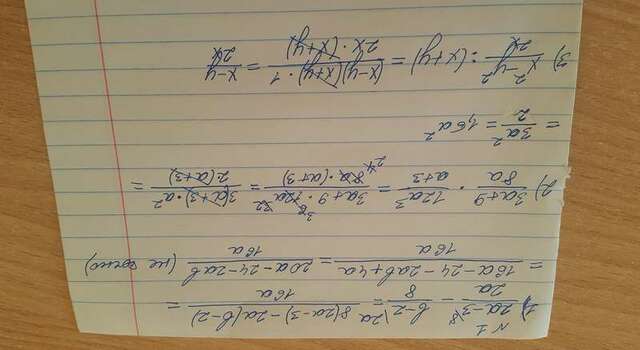 N1
1) (2a-3)/2a \8 - (b-2)/8 \2a = (8(2a-3)-2a(b-2))/16a =
= (16a-24-2ab+4a)/16a = (20a-24-2ab)/16a (не точно)
2) (3a+9)/8a · 12a³/(a+3) = (3a+9·12a³)/(8a·(a+3)) = (3(a+3)·a²)/(2(a+3)) =
= 3a²/2 = 1,5a²
3) (x²-y²)/2x : (x+y) = ((x-y)(x+y)·1)/(2x·(x+y)) = (x-y)/2x